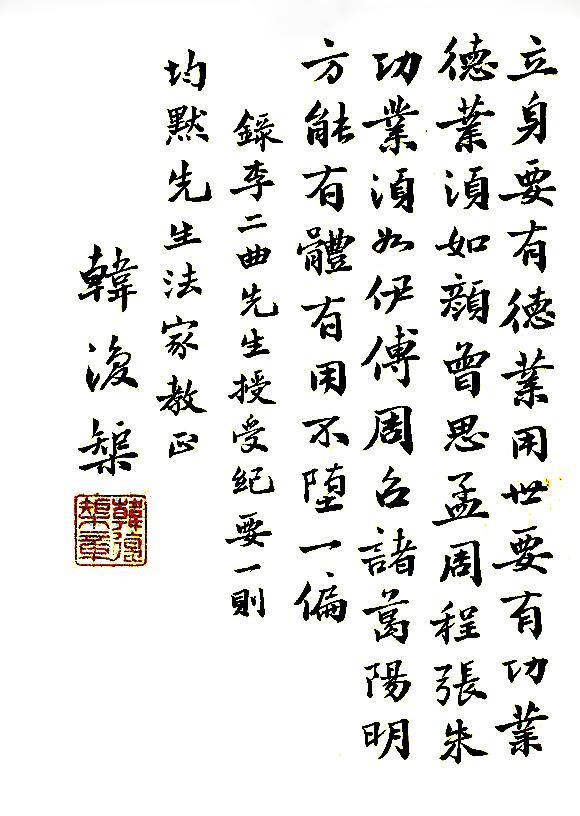 立身要有德業用世要有功業
德業湏如顔曾思孟周程張朱
功業湏如伊傅周召諸葛陽明
方能有體有用不墮一偏
錄李二曲先生授受紀要一則
均默先生法家教正
韓復榘
韓復榘章